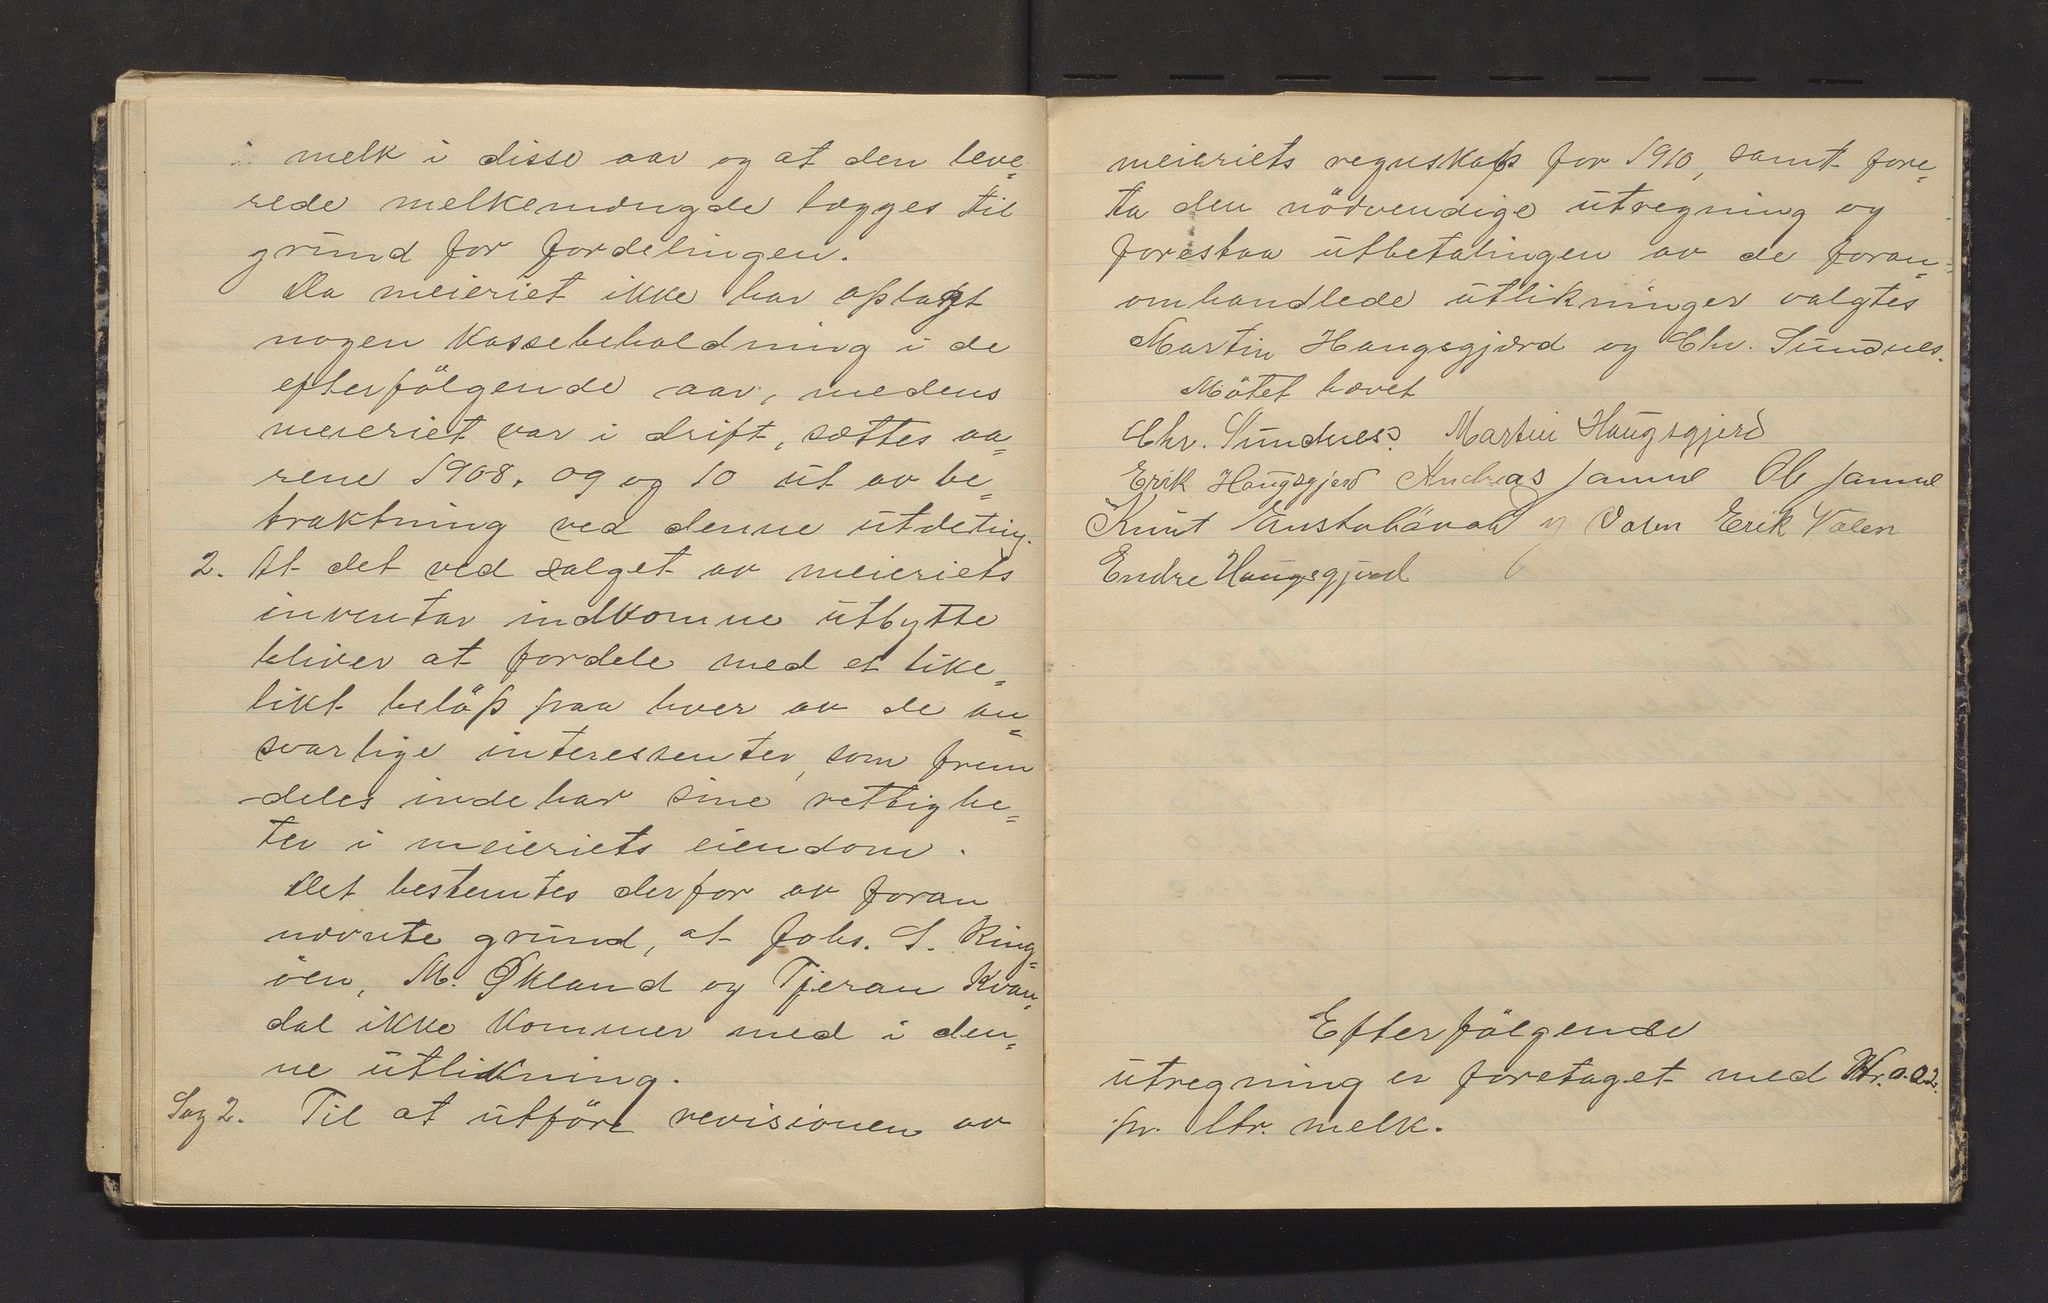 melk i disse aar og at den leve=
rede melkemængde lægges til
grund for fordelingen.
Da meieriet ikke har oplagt
nogen kassebeholdning i de
efterfölgende aar, medens
meieriet var i drift, sættes aa=
rene 1908. 09 og 10 ut av be=
traktning ved denne utdeling.
2. At det ved salget av meieriets
inventar indkomne utbytte
bliver at fordele med et like=
likt belöp paa hver av de an=
svarlige interessenter, som frem
-deles indehar sine rettighe=
ter i meieriets eiendom.
Det bestemtes derfor av foran
nævnte grund, at Johs. S. Ring=
öen, M. Økland og Tjeran Kvan=
dal ikke kommer med i den=
ne utlikning.
Sag 2. Til at utföre revisionen av
meieriets regnskap for 1910, samt fore=
ta den nödvendige utregning og
forestaa utbetalingen av de foran=
omhandlede utlikninger valgtes
Martin Haugsgjærd og Chr. Sundnes.
Mötet hævet
Chr. Sundnes. Martin Haugsgjerd
Erik Haugsgjerd Andreas Jamne Ole Jamne
Knut Valen Erik Valen
Endre Haugsgjerd
Efterfölgende
utregning er foretaget med Kr. 0.02.
pr. ltr. melk.